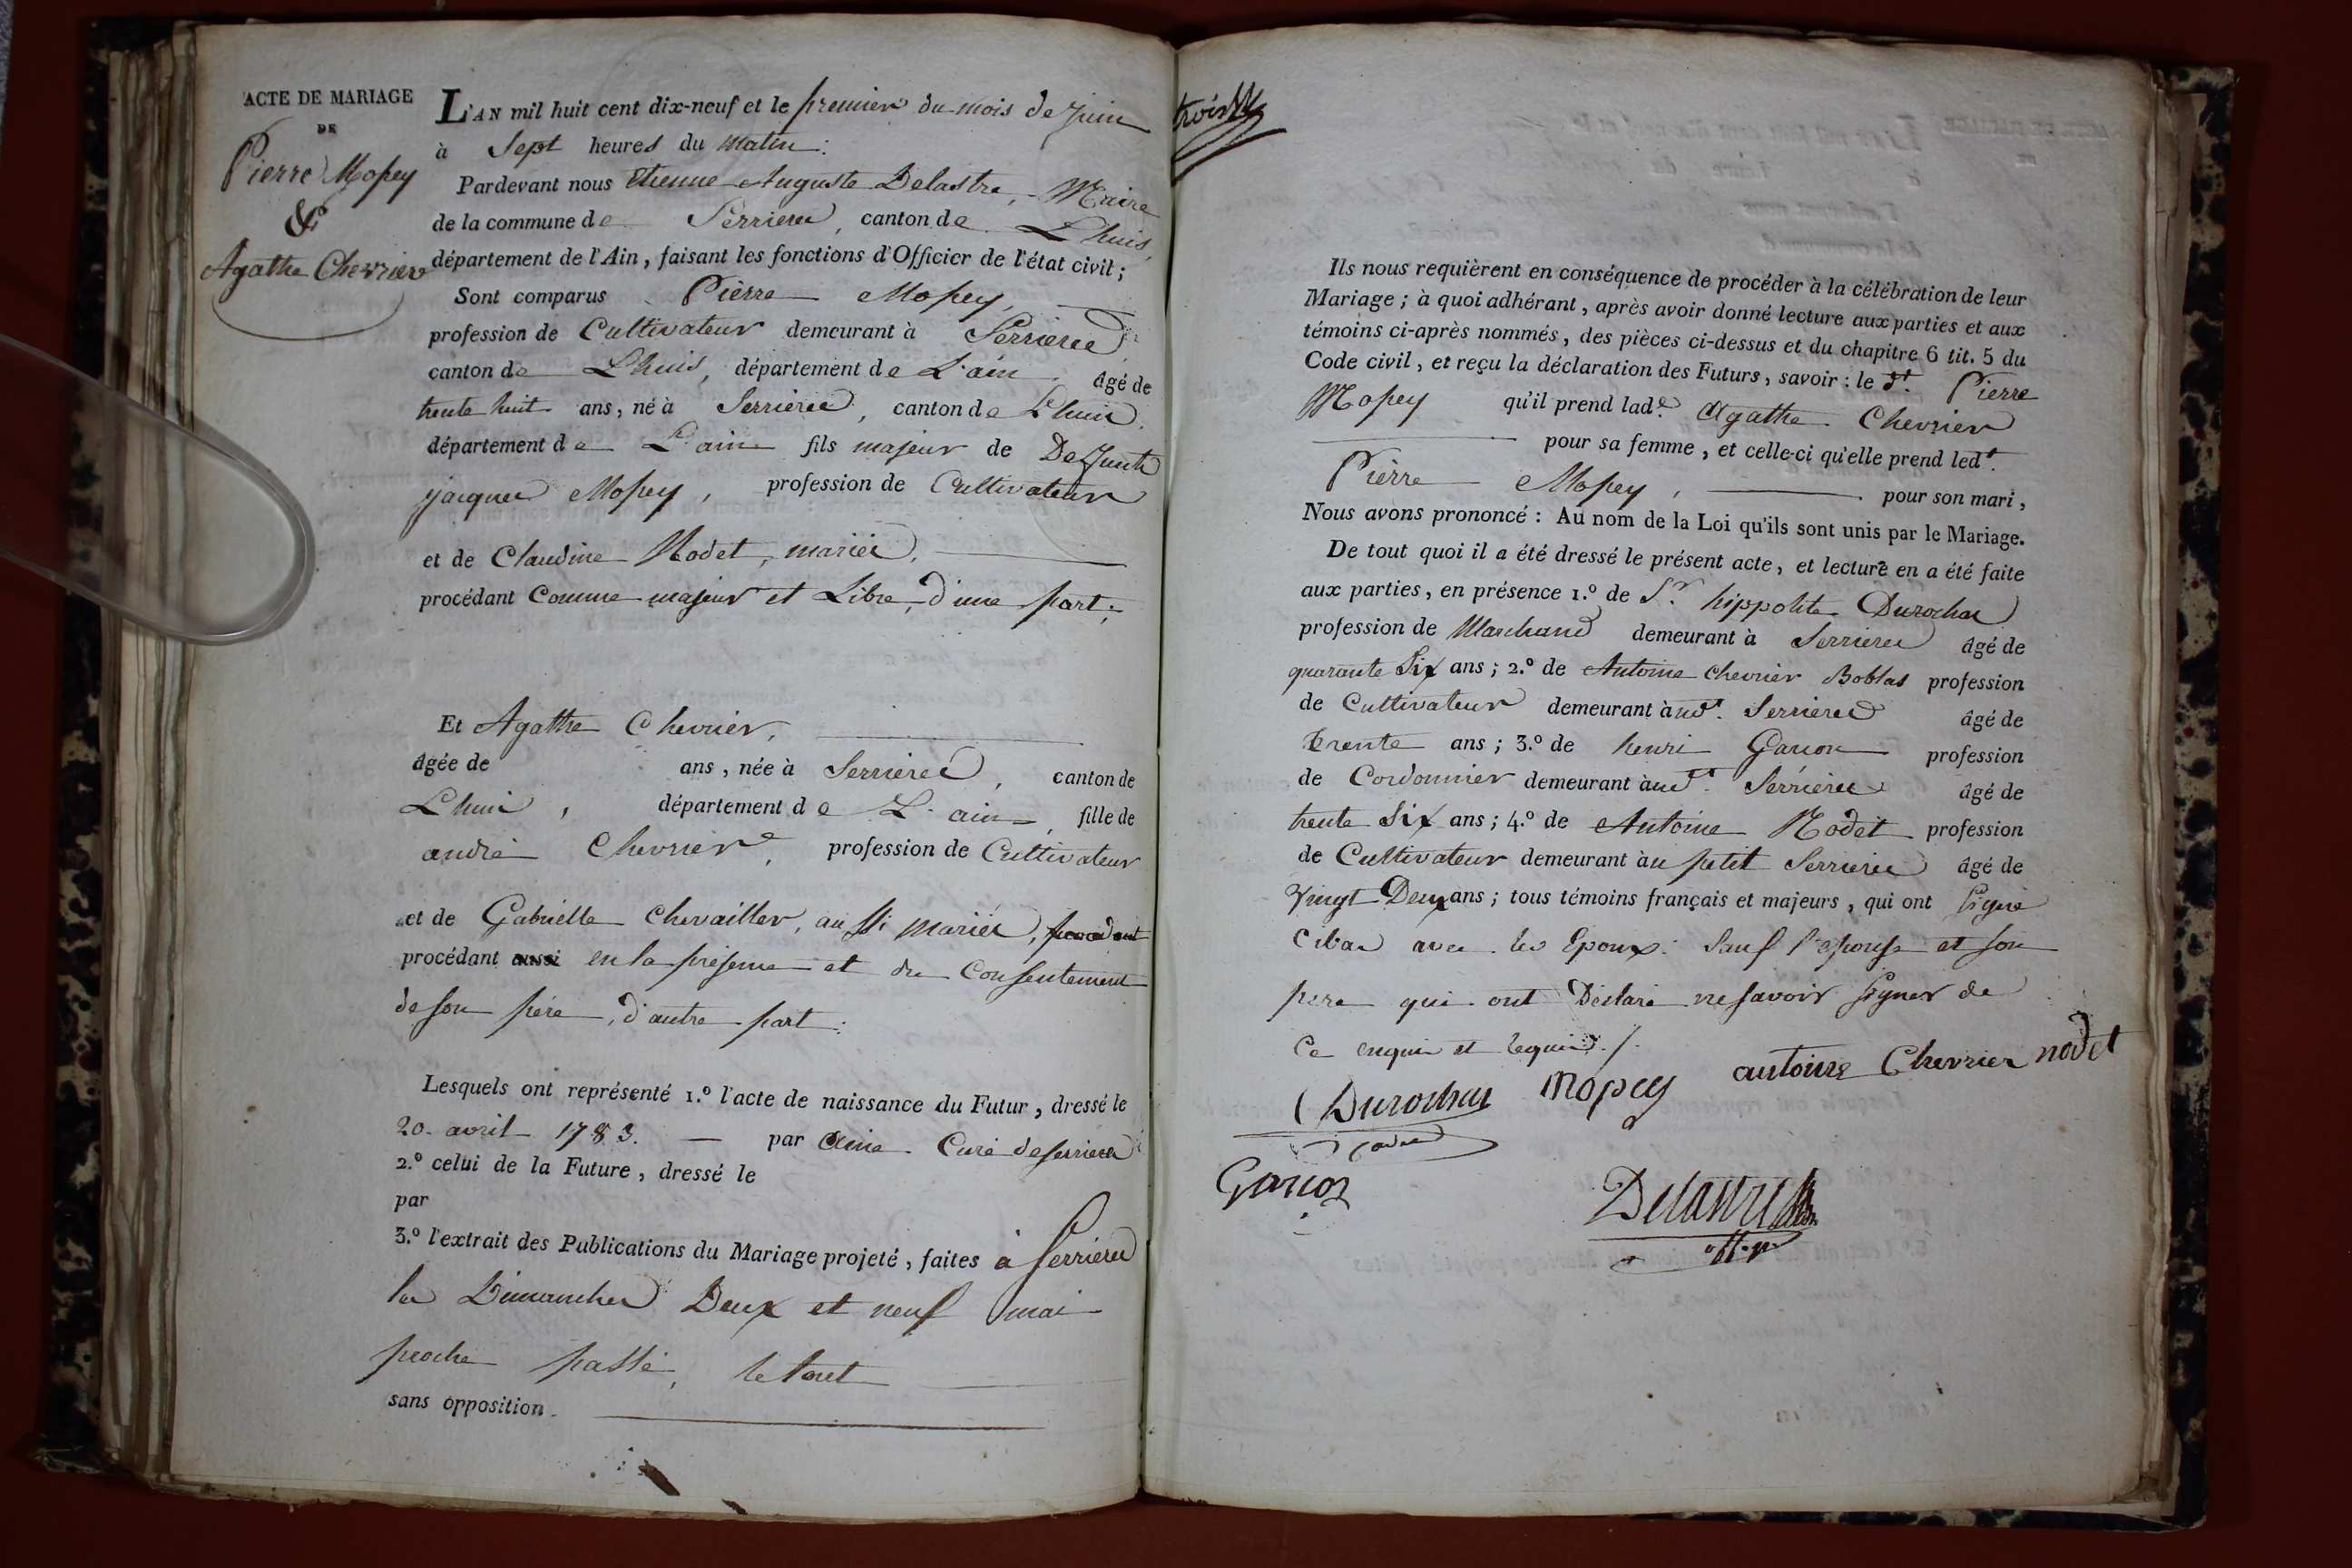 ACTE DE MARIAGE
DE
Pierre Mopey
&
Agathe Chevrier
L'AN mil huit cent dix-neuf et le premier du mois de juin
à Sept heures du matin:
Pardevant nous Etienne Auguste Delastre, Maire
de la commune de Serrieres, canton de Lhuis,
département de l'Ain, faisant les fonctions d'Officier de l'état civil;
Sont comparus Pierre Mopey,
profession de Cultivateur demeurant à Serrieres
canton de Lhuis, département de L'ain âgé de
trente huit ans, né à Serrieres, canton de Lhuis
département de L'ain fils majeur de Defunt
jacques Mopey, profession de Cultivateur
et de Claudine Nodet, mariés,
procédant Comme majeur et Libre, d'une part;
Et Agathe Chevrier,
âgée de ans, née à Serrieres, canton de
Lhuis, département de L'ain, fille de
andré Chevrier, profession de Cultivateur
et de Gabrielle Chevailler, aussi mariés, procedant
procédant aussi en la présence et du Consentement
de son père, d'autre part:
Lesquels ont représenté 1.º l'acte de naissance du Futur, dressé le
20 avril 1783. par Curé de serrieres
2.º celui de la Future, dressé le
par
3.º l'extrait des Publications du Mariage projeté, faites à Serrieres
les Dimanches Deux et neuf mai
proche passé, le tout
sans opposition.
trois
Ils nous requièrent en conséquence de procéder à la célébration de leur
Mariage; à quoi adhérant, après avoir donné lecture aux parties et aux
témoins ci-après nommés, des pièces ci-dessus et du chapitre 6 tit. 5 du
Code civil, et reçu la déclaration des Futurs, savoir: le dt. Pierre
Mopey qu'il prend lade Agathe Chevrier
pour sa femme, et celle-ci qu'elle prend ledt.
Pierre Mopey, pour son mari,
Nous avons prononcé: Au nom de la Loi qu'ils sont unis par le Mariage.
De tout quoi il a été dressé le présent acte, et lecture en a été faite
aux parties, en présence 1.º de Sr. hippolite Durochas
profession de Marchand demeurant à Serrieres âgé de
quarante Six ans; 2.º de Antoine Chevrier Boblas profession
de Cultivateur demeurant àudt. Serrieres âgé de
trente ans; 3.º de henri Garion profession
de Cordonnier demeurant àudt. Serrieres âgé de
trente Six ans; 4.º de Antoine Nodet profession
de Cultivateur demeurant àu petit Serrieres âgé de
Vingt Deux ans; tous témoins français et majeurs, qui ont signé
avec les Epoux. Sauf l'epouse et son
pere qui ont Déclaré ne savoir signer de
Ce enquis et requis./.
Durochas Mopey antoine Chevrier nodet
Garion
Delastre